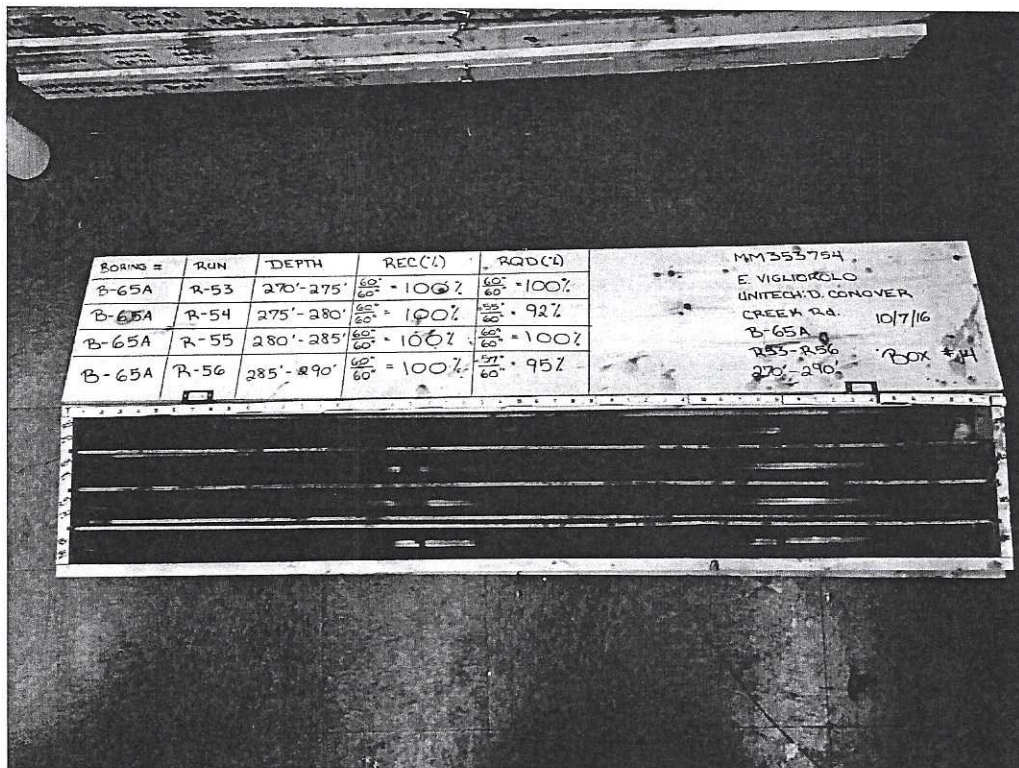 BORING # RUN DEPTH REC(%) RQD(%)
B-65A R-53 270'-275' 60"/60" = 100% 60"/60" = 100%
B-65A R-54 275'-280' 60"/60" = 100% 55"/60" = 92%
B-65A R-55 280'-285' 60"/60" = 100% 60"/60" = 100%
B-65A R-56 285'-290' 60"/60" = 100% 57"/60" = 95%
MM353754
E. VIGLIOROLO
UNITECH: D. CONOVER
CREEK Rd. 10/7/16
B-65A
R53-R56 Box #14
270'-290'